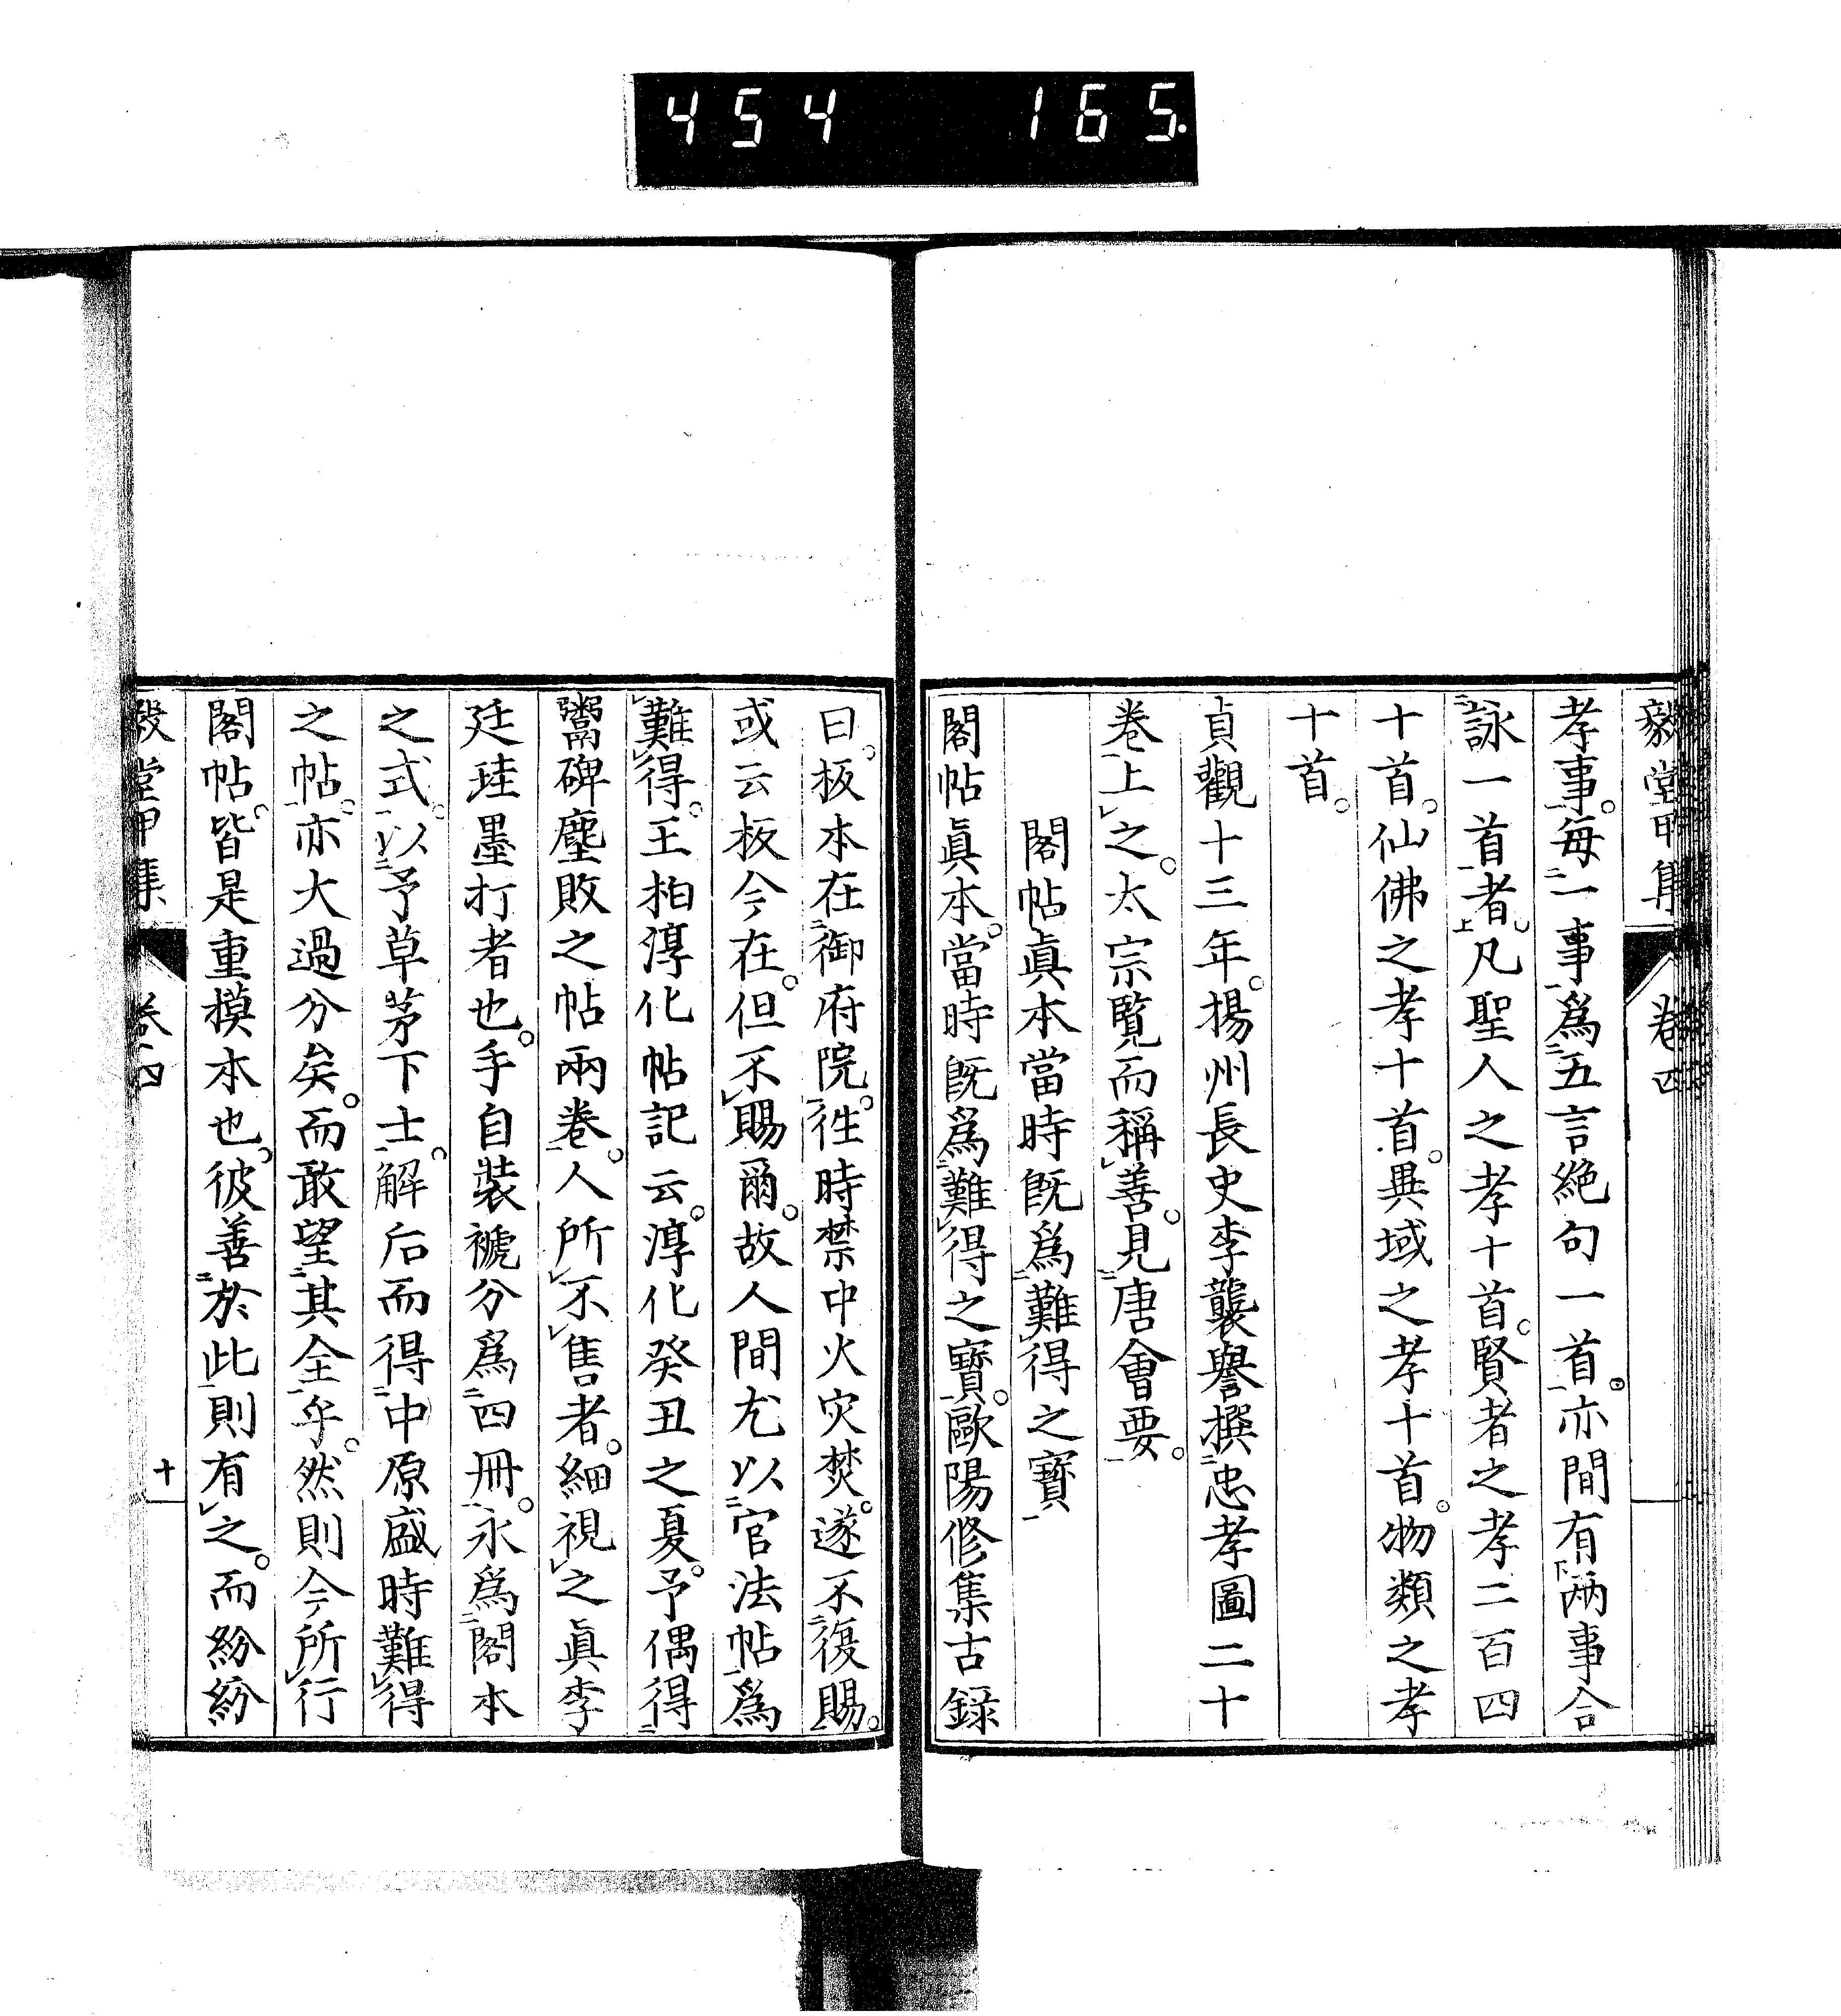 454 165.
毅堂甲集 卷四
孝事。每一事爲五言絶句一首。亦間有兩事合
詠一首者。凡聖人之孝十首。賢者之孝二百四
十首。仙佛之孝十首。異域之孝十首。物類之孝
十首。
貞觀十三年。揚州長史李襲譽撰忠孝圖二十
卷上之。太宗覽而稱善。見唐會要。
閣帖眞本當時既爲難得之寶
閣帖眞本。當時既爲難得之寶。歐陽修集古録
曰。板本在御府院。往時禁中火灾焚。遂不復賜。
或云板今在。但不賜爾。故人間尤以官法帖爲
難得。王柏淳化帖記云。淳化癸丑之夏。予偶得
鬻碑塵敗之帖兩卷。人所不售者。細視之眞李
廷珪墨打者也。手自装褫分爲四冊。永爲閣本
之式。以予草茅下士。解后而得中原盛時難得
之帖。亦大過分矣。而敢望其全乎。然則今所行
閣帖。皆是重摸本也。彼善於此則有之。而紛紛
毅堂甲集 卷四 十